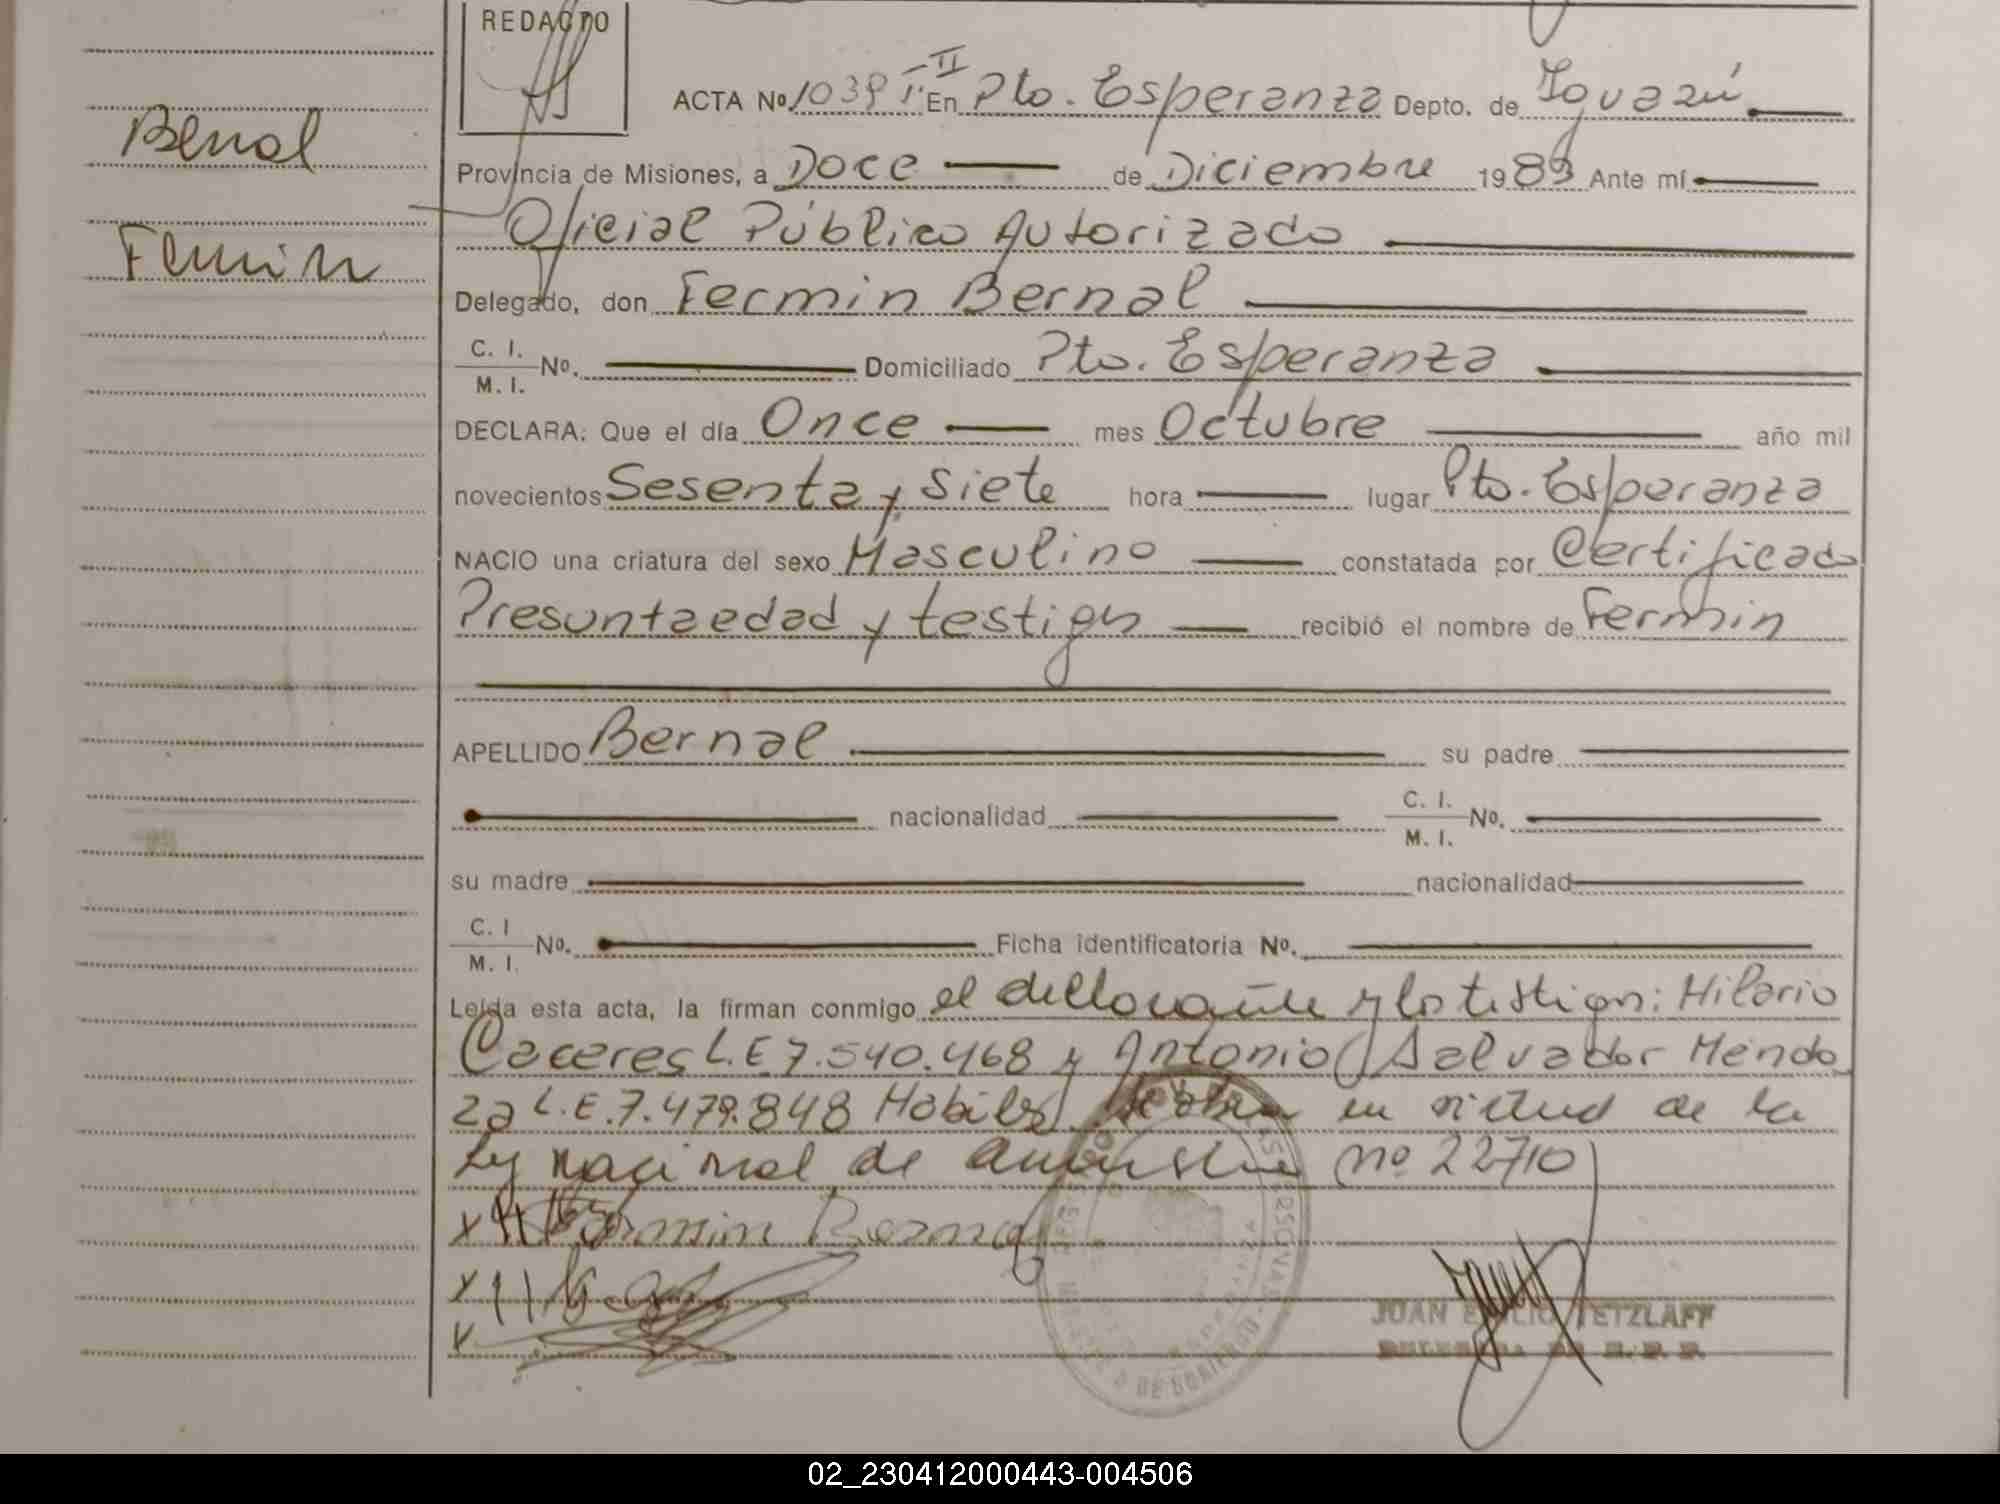 REDACTO
ACTA Nº 1039 T-II En Pto. Esperanza Depto. de Iguazú
Bernal
Provincia de Misiones, a Doce de Diciembre 1983 Ante mí
Oficial Público Autorizado
Fermin
Delegado, don Fermin Bernal
C. I. M. I. Nº. Domiciliado Pto. Esperanza
DECLARA: Que el día Once mes Octubre año mil
novecientos Sesenta y siete hora lugar Pto. Esperanza
NACIO una criatura del sexo Masculino constatada por Certificado
Presunta edad y testigos recibió el nombre de Fermin
APELLIDO Bernal su padre
nacionalidad C. I. M. I. Nº.
su madre nacionalidad
C. I M. I. Nº. Ficha identificatoria Nº.
Leída esta acta, la firman conmigo el declarante y los testigos: Hilario
Caceres L.E 7.540.468 y Antonio Salvador Mendo
za L.E. 7.479.848 Habiles en virtud de la
Ley nacional de amnistia (nº 22710)
Fermin Bernal
JUAN EMILIO TETZLAFF
02_230412000443-004506